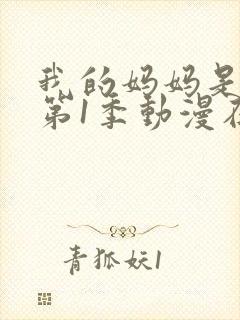 我的妈妈是
第1季動漫在
青狐妖1